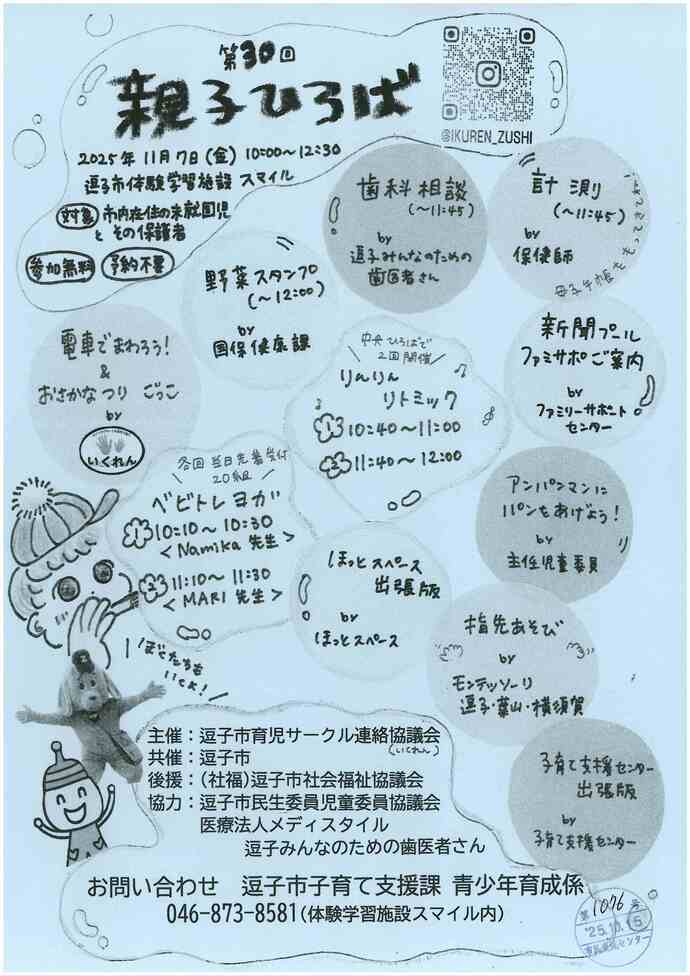 第30回
親子ひろば
@IKUREN_ZUSHI
2025年11月7日(金) 10:00〜12:30
逗子市体験学習施設 スマイル
対象 市内在住の未就園児
とその保護者
参加無料 予約不要
歯科相談
(〜11:45)
by
逗子みんなのための
歯医者さん
計測
(〜11:45)
by
保健師
母子手帳をもってきてね!
野菜スタンプ
(〜12:00)
by
国保健康課
新聞プール
ファミサポご案内
by
ファミリーサポート
センター
電車でまわろう!
&
おさかなつり ごっこ
by
いくれん
中央ひろばで
2回開催
りんりん
リトミック
① 10:40〜11:00
② 11:40〜12:00
各回 当日先着受付
20組
ベビトレヨガ
① 10:10〜10:30
<Namika 先生>
② 11:10〜11:30
<MARI 先生>
アンパンマンに
パンをあげよう!
by
主任児童委員
ほっとスペース
出張版
by
ほっとスペース
指先あそび
by
モンテッソーリ
逗子・葉山・横須賀
ぼくたちも
いくよ!
子育て支援センター
出張版
by
子育て支援センター
主催:逗子市育児サークル連絡協議会
(いくれん)
共催:逗子市
後援:(社福)逗子市社会福祉協議会
協力:逗子市民生委員児童委員協議会
医療法人メディスタイル
逗子みんなのための歯医者さん
お問い合わせ 逗子市子育て支援課 青少年育成係
046-873-8581(体験学習施設スマイル内)
第1076号
'25.10.15